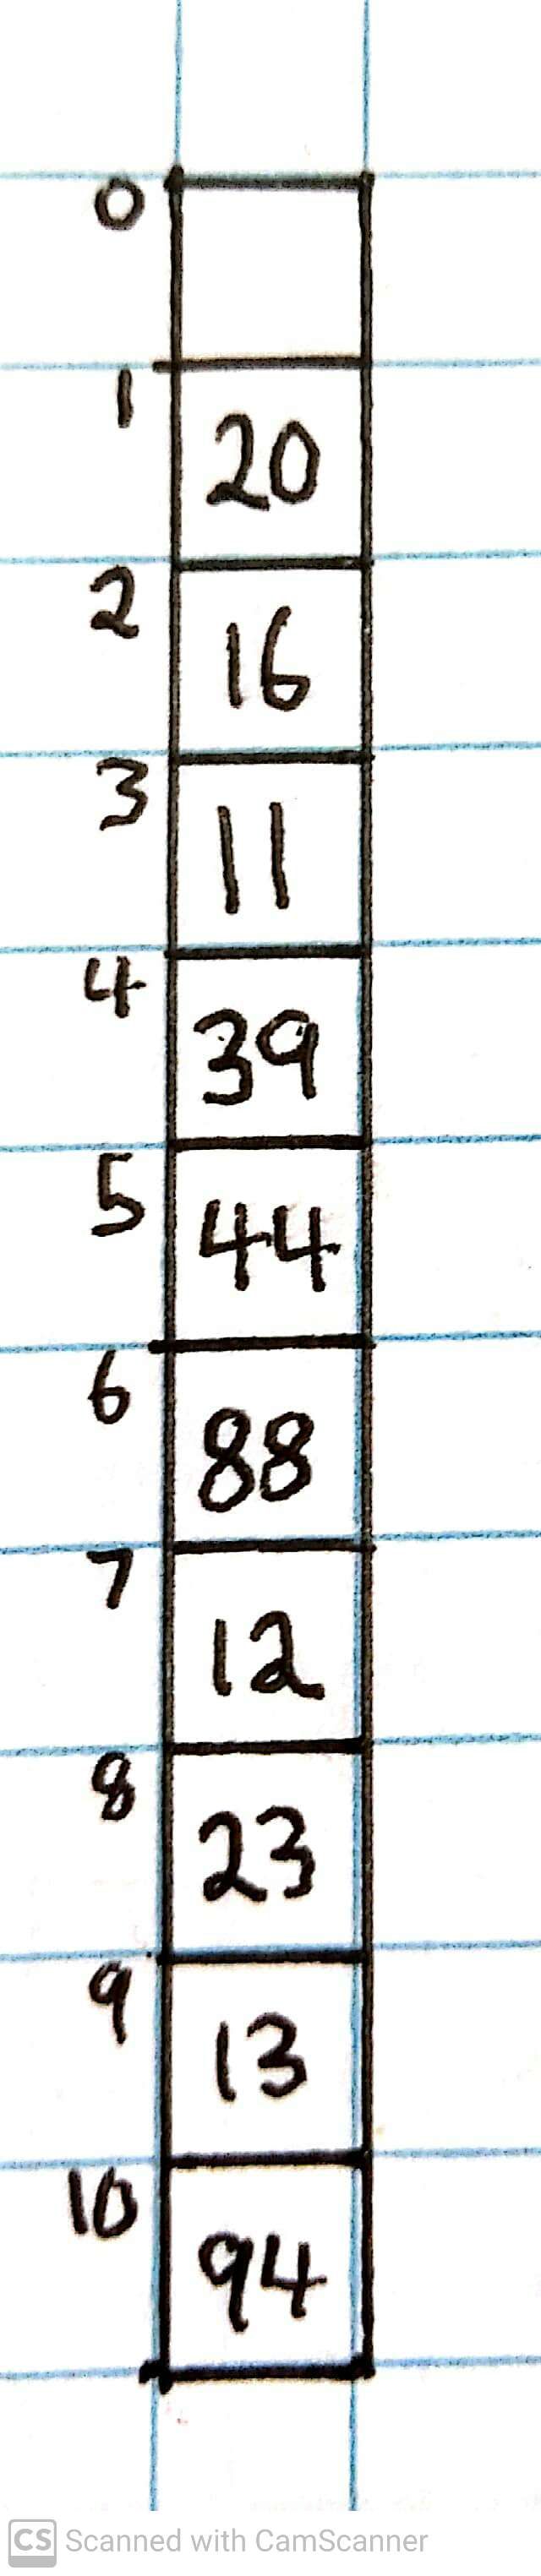 0
1
20
2
16
3
11
4
39
5
44
6
88
7
12
8
23
9
13
10
94
CS Scanned with CamScanner